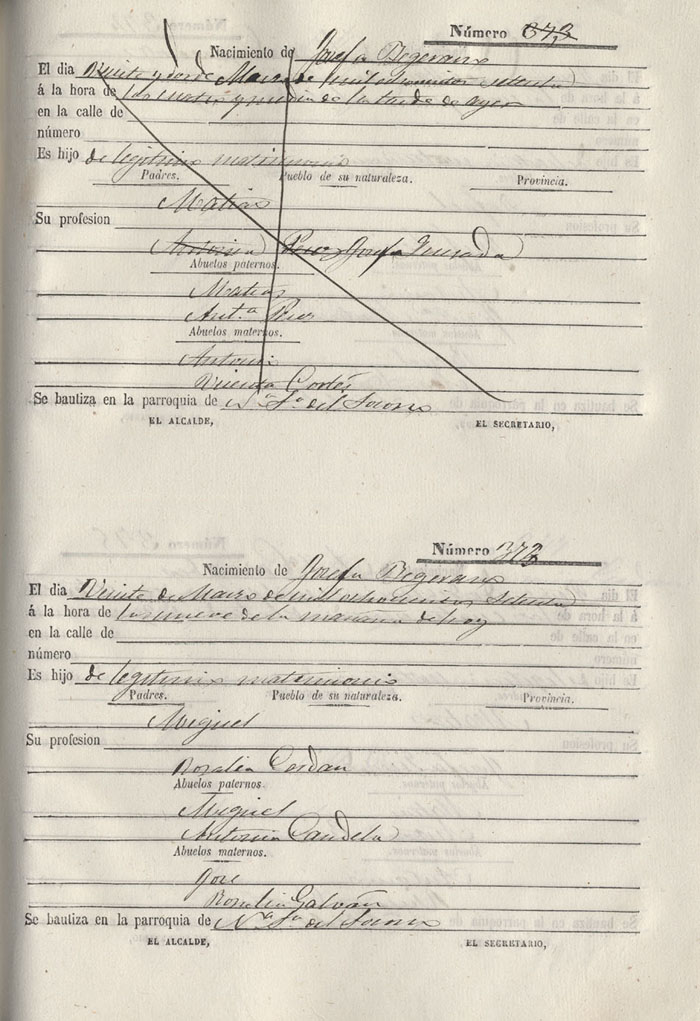 Número 373
Nacimiento de Josefa Begerano
El dia Veinte y dos de Marzo de mil ochocientos setenta
á la hora de las cuatro y media de la tarde de ayer
en la calle de
número
Es hijo de legitimo matrimonio
Padres. Pueblo de su naturaleza. Provincia.
Matias
Su profesion
Antonia Perez Josefa Quesada
Abuelos paternos.
Matias
Ant.ª Perez
Abuelos maternos.
Antonio
Vicenta Cortés
Se bautiza en la parroquia de N.ª S.ª del Socorro
EL ALCALDE, EL SECRETARIO,
Número 373
Nacimiento de Josefa Begerano
El dia Veinte de Marzo de mil ochocientos setenta
á la hora de las nueve de la mañana de hoy
en la calle de
número
Es hijo de legitimo matrimonio
Padres. Pueblo de su naturaleza. Provincia.
Miguel
Su profesion
Rosalia Cerdan
Abuelos paternos
Miguel
Antonia Candela
Abuelos maternos.
José
Rosalia Galván
Se bautiza en la parroquia de N.ª S.ª del Socorro
EL ALCALDE, EL SECRETARIO,